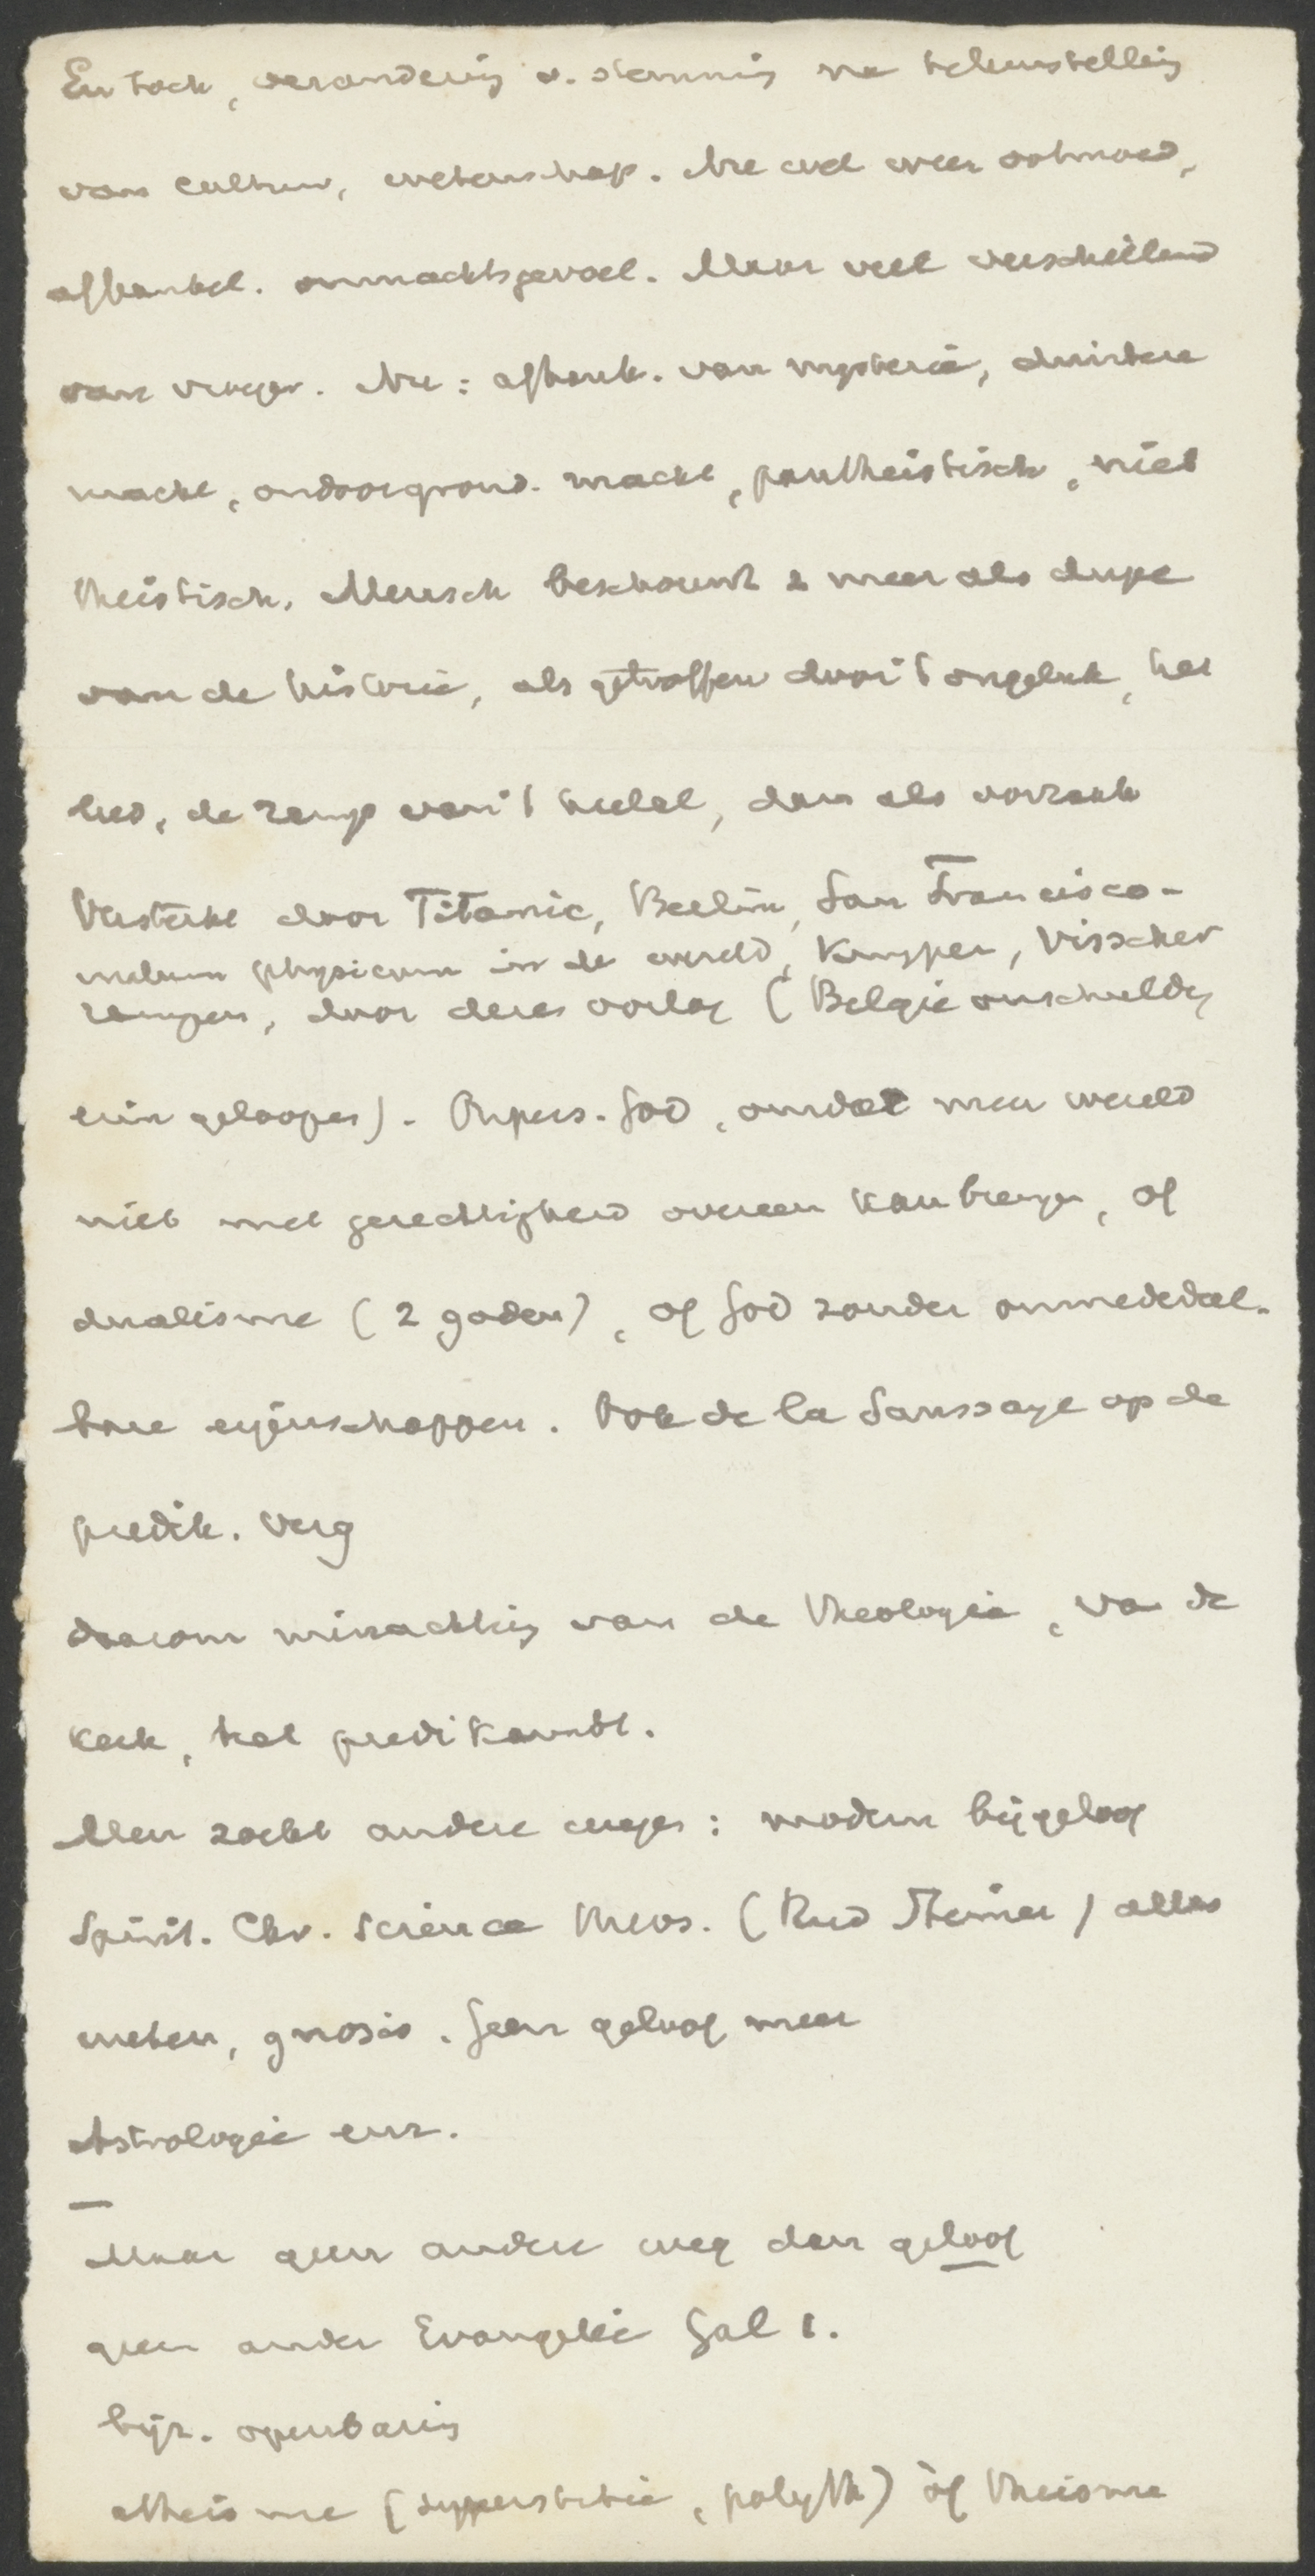 En toch, verandering v. stemming na teleurstelling
van cultuur, wetenschap. Nu wel weer ootmoed,
afhankel. onmachtsgevoel. Maar veel verschillend
van vroeger. Nu: afhank. van mysterie, duistere
macht, ondoorgrond. macht, pantheistisch, niet
theistisch. Mensch beschouwt z meer als dupe
van de historie, als getroffen door 't ongeluk, het
leed, de ramp van 't heelal, dan als oorzaak
Versterkt door Titanic, Berlin, San Francisco-
malum physicum in de wereld, Kuyper, Visscher
rampen, door dezen oorlog (Belgie onschuldig
erin geloopen). Onpers. God, omdat men wereld
niet met gerechtigheid overeen kan brengen, of
dualisme (2 goden), of God zonder onmededeel-
bare eigenschappen. Ook de la Saussaye op de
predik. verg
daarom minachting van de theologie, van de
kerk, het predikambt.
Men zoekt andere wegen: modern bijgeloof
Spirit. Chr. Science theos. (Rud Steiner) alles
weten, gnosis. Geen geloof meer
Astrologie enz.
—
Maar geen andere weg dan geloof
geen ander Evangelie Gal 1.
bijz. openbaring
atheisme (superstitie, polyth) òf theisme